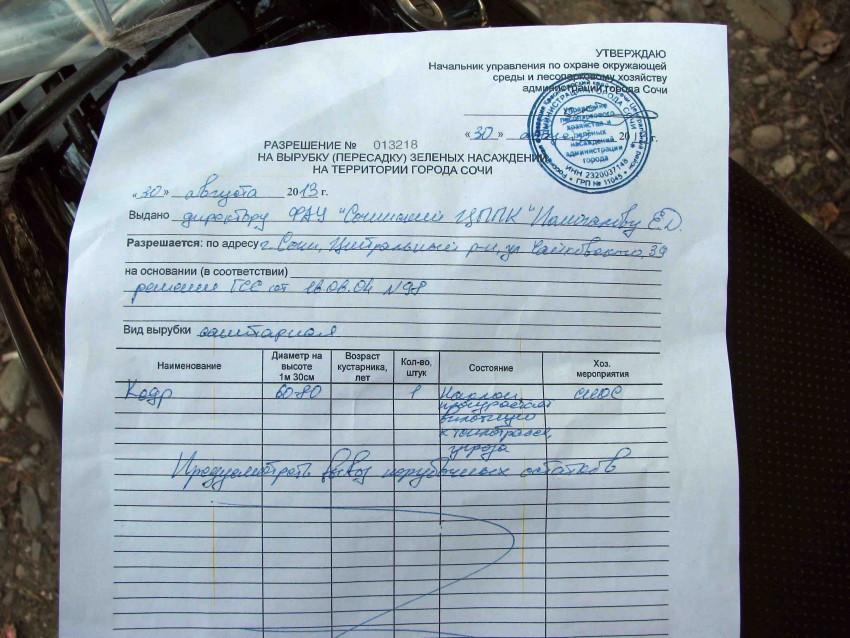 УТВЕРЖДАЮ
Начальник управления по охране окружающей
среды и лесопарковому хозяйству
администрации города Сочи
«30» августа 2013 г.
АДМИНИСТРАЦИЯ ГОРОДА СОЧИ
Управление
лесопаркового
хозяйства и
зеленых
насаждений
администрации
города
ИНН 2320037148
ГРП № 11045
РАЗРЕШЕНИЕ № 013218
НА ВЫРУБКУ (ПЕРЕСАДКУ) ЗЕЛЕНЫХ НАСАЖДЕНИЙ
НА ТЕРРИТОРИИ ГОРОДА СОЧИ
«30» августа 2013 г.
Выдано директору ФАУ "Сочинский ЦППК" Е.Д.
Разрешается: по адресу г. Сочи, Центральный р-н, ул. Чайковского, 39
на основании (в соответствии)
решения ГСС от №98
Вид вырубки санитарная
Наименование Диаметр на высоте 1м 30см Возраст кустарника, лет Кол-во, штук Состояние Хоз. мероприятия
Кедр 60-80 1 Наклон, снос
произрастает
вплотную
к теплотрассе,
угроза
Предусмотреть вывоз порубочных остатков